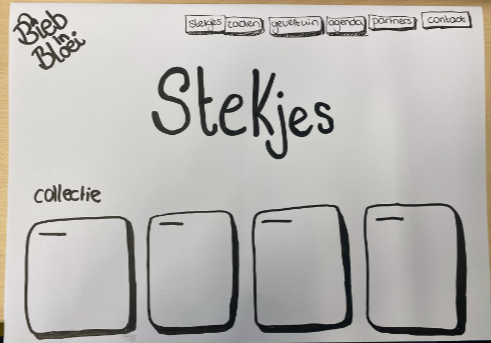 De
Bieb
in
Bloei
stekjes zaden geveltuin agenda partners contact
Stekjes
collectie